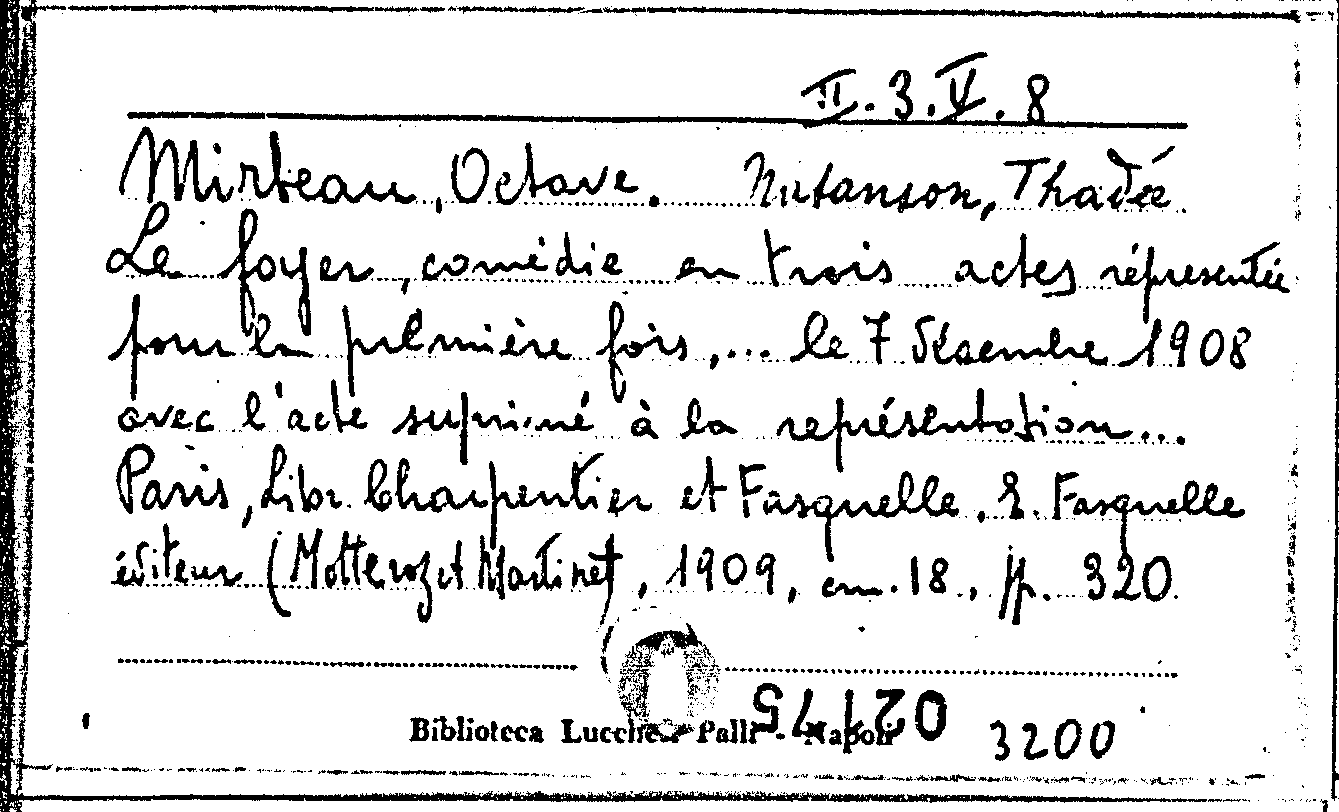 II. 3. V. 8
Mirbeau, Octave. Natanson, Thadée
Le foyer, comédie en trois actes répresentée
pour la première fois, ... le 7 décembre 1908
avec l'acte suprimé à la représentation...
Paris, Libr. Charpentier et Fasquelle. E. Fasquelle
éditeur (Motteroz et Martinet), 1909, cm. 18, pp. 320
Biblioteca Lucchesi Palli - Napoli
3200